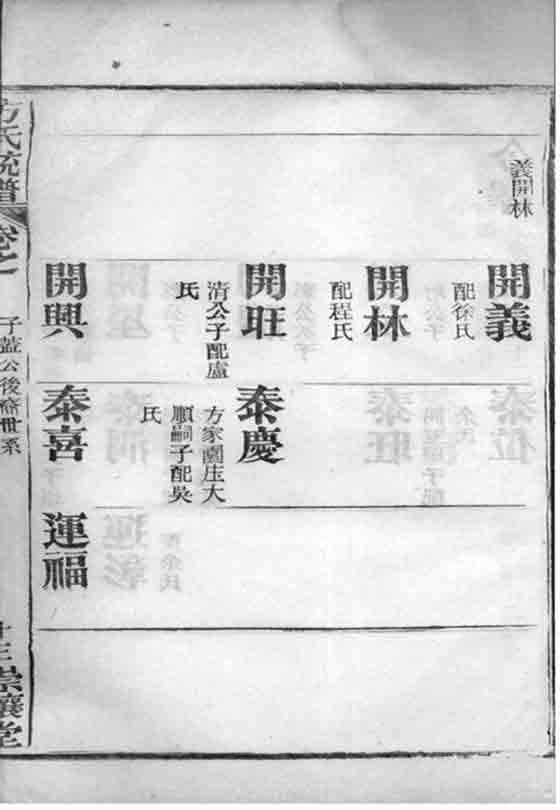 義開林
開義
配徐氏
開林
配程氏
開旺
清公子配盧
氏
開興
泰慶
方家園庄大
順嗣子配吳
氏
泰喜
運福
方氏統譜
卷之
子蓝公後裔世系
崇讓堂